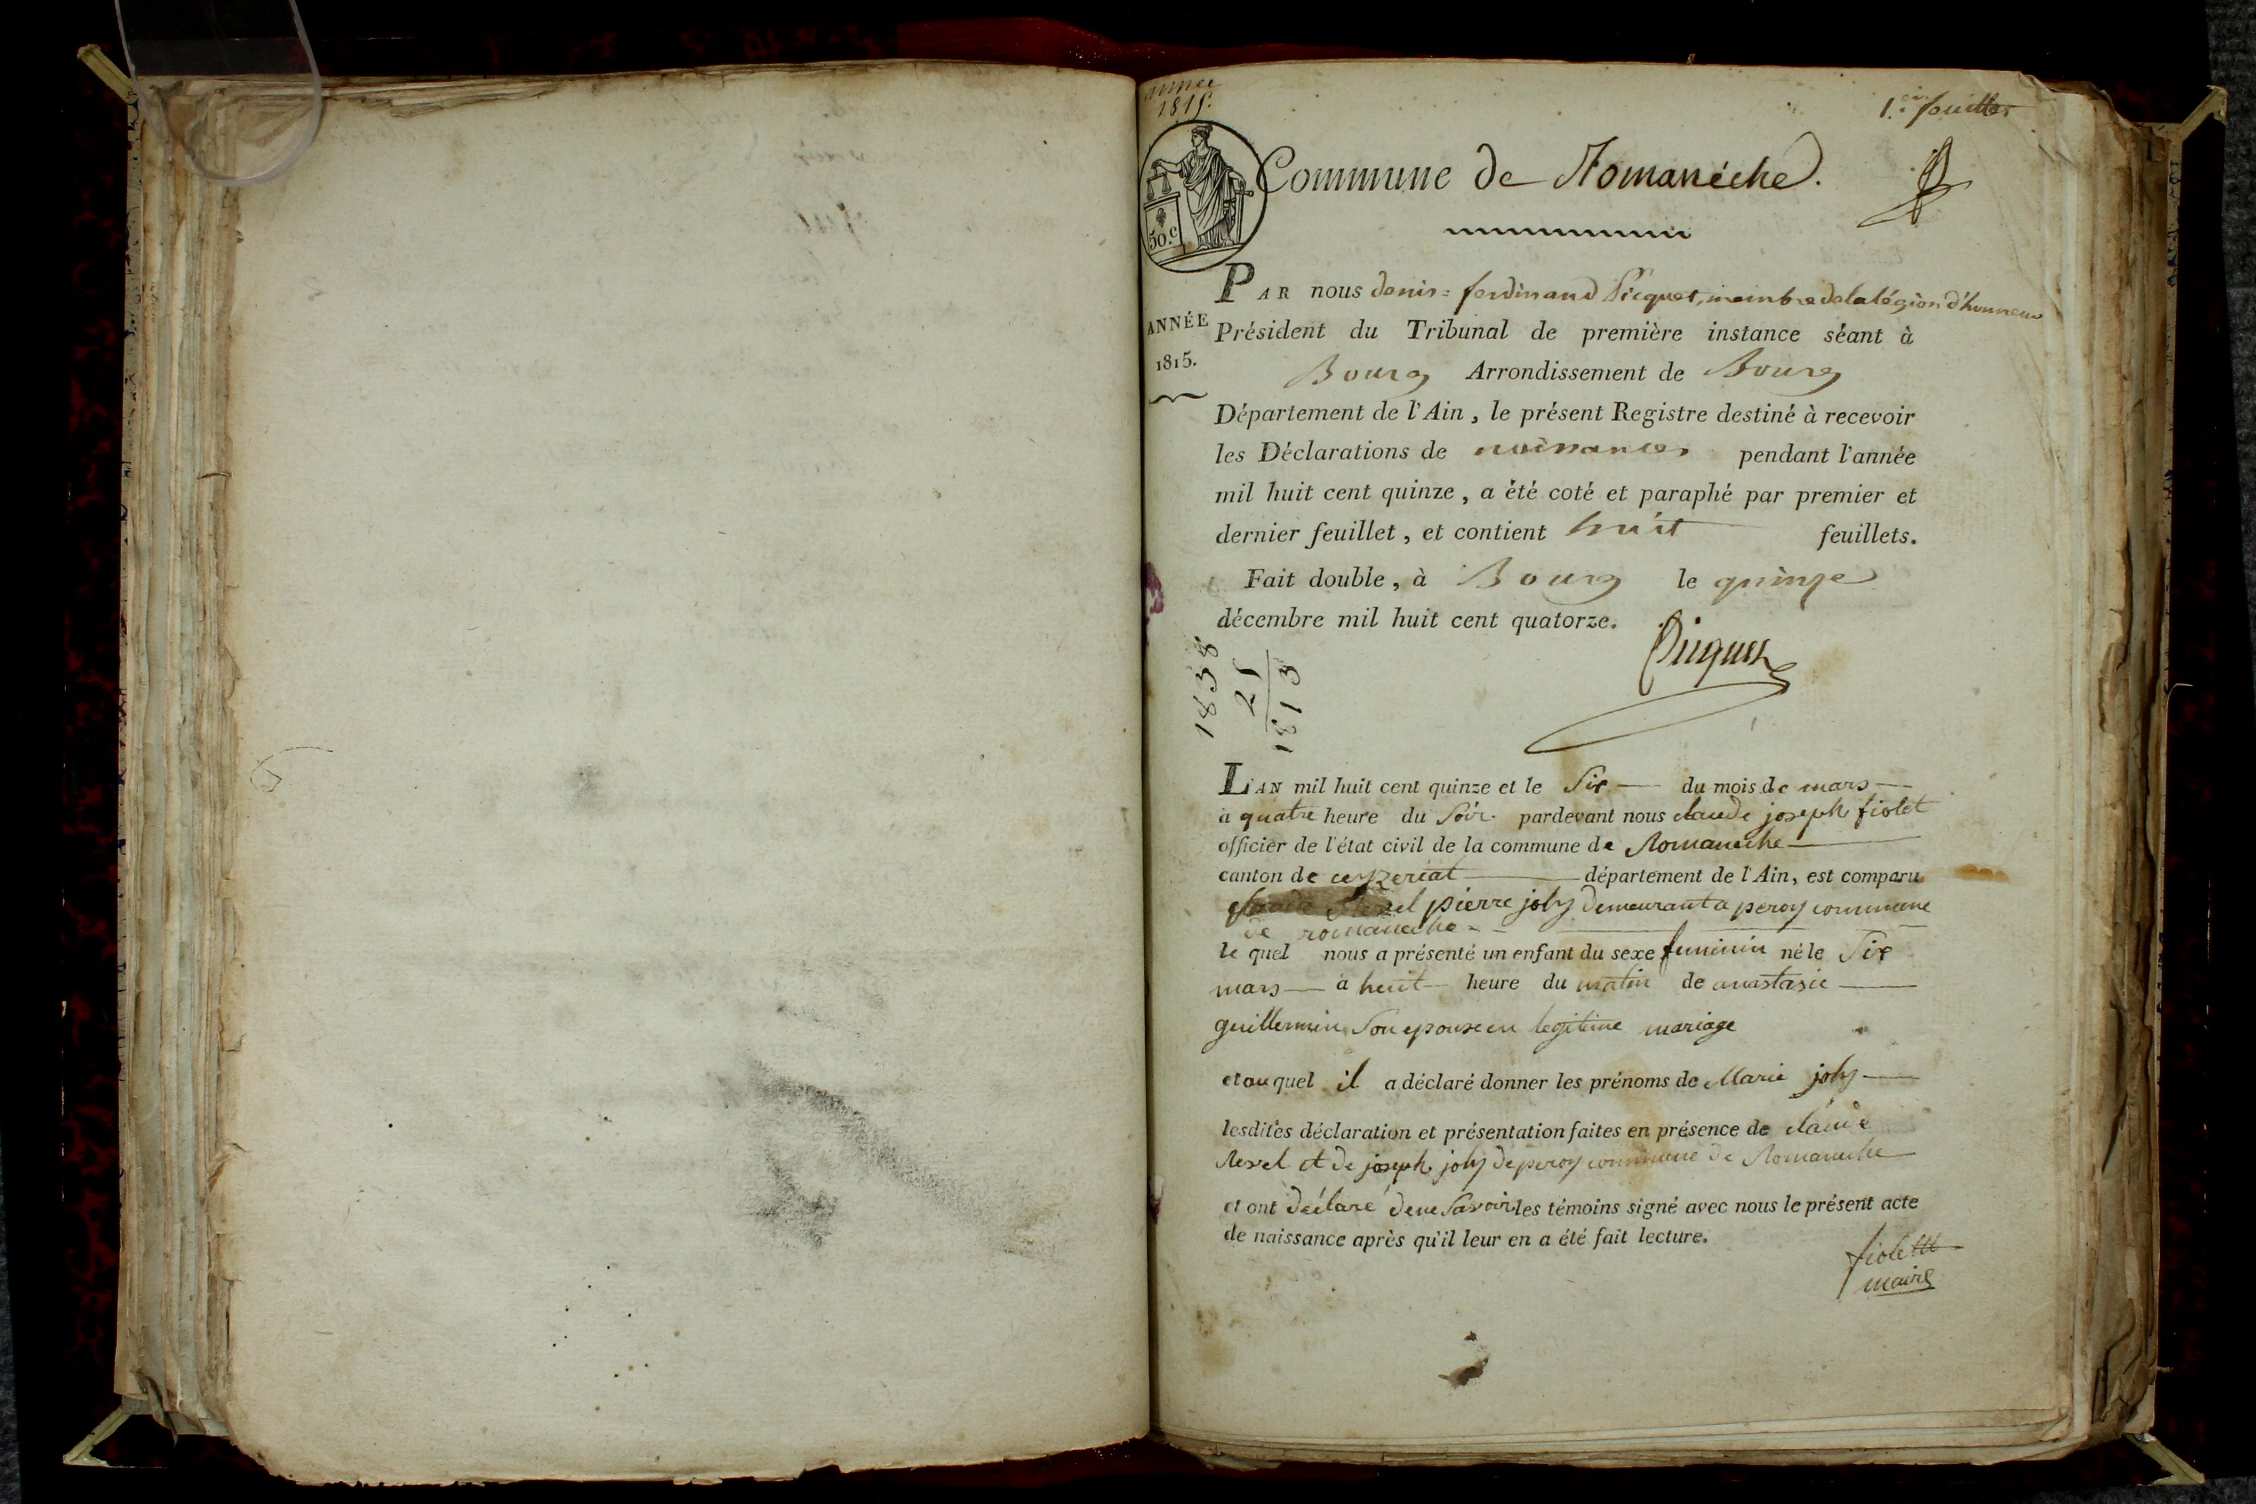 année
1815.
1.er feuillet
50.c
Commune de Romanéche.
PAR nous denis=ferdinand Picquet, membre de la légion d'honneur
ANNÉE
1815.
Président du Tribunal de première instance séant à
Bourg Arrondissement de Bourg
Département de l'Ain, le présent Registre destiné à recevoir
les Déclarations de naissances pendant l'année
mil huit cent quinze, a été coté et paraphé par premier et
dernier feuillet, et contient huit feuillets.
Fait double, à Bourg le quinze
décembre mil huit cent quatorze.
Picquet
1838
25
1813
L'AN mil huit cent quinze et le Six du mois de mars
a quatre heure du Soir pardevant nous claude joseph fiolet
officier de l'état civil de la commune de Romaneche
canton de ceyzeriat département de l'Ain, est comparu
pierre joly demeurant a peroy commune
de romaneche
le quel nous a présenté un enfant du sexe feminin né le Six
mars à huit heure du matin de anastasie
guillermin Son epouse en legitime mariage
et au quel il a déclaré donner les prénoms de Marie joly
lesdites déclaration et présentation faites en présence de claude
Revel et de joseph joly de peroy commune de Romaneche
et ont déclaré de ne Savoir les témoins signé avec nous le présent acte
de naissance après qu'il leur en a été fait lecture.
fiolet
maire